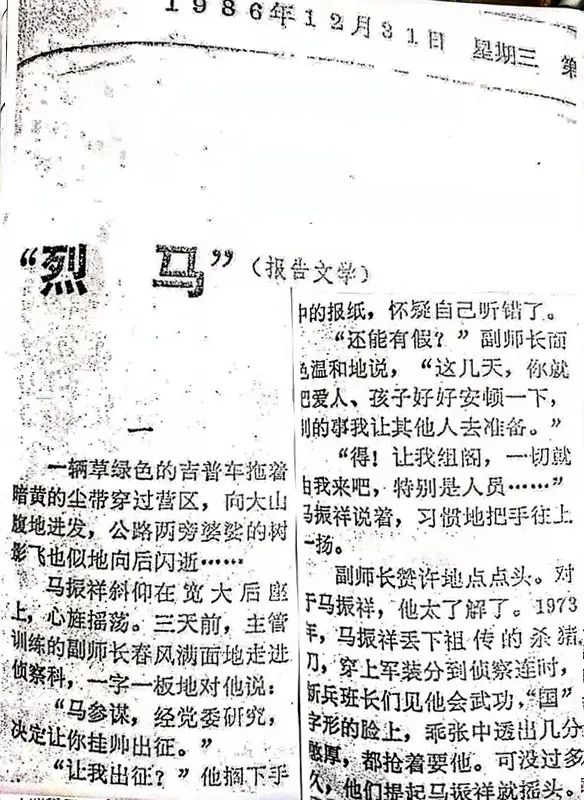 1986年12月31日 星期三 第
“烈 马”（报告文学）
一
一辆草绿色的吉普车拖着
暗黄的尘带穿过营区，向大山
腹地进发，公路两旁婆娑的树
影飞也似地向后闪逝……
马振祥斜仰在宽大后座
上，心旌摇荡。三天前，主管
训练的副师长春风满面地走进
侦察科，一字一板地对他说：
“马参谋，经党委研究，
决定让你挂帅出征。”
“让我出征？”他搁下手
中的报纸，怀疑自己听错了。
“还能有假？”副师长面
色温和地说，“这几天，你就
把爱人、孩子好好安顿一下，
别的事我让其他人去准备。”
“得！让我组阁，一切就
由我来吧，特别是人员……”
马振祥说着，习惯地把手往上
一扬。
副师长赞许地点点头。对
于马振祥，他太了解了。1973
年，马振祥丢下祖传的杀猪
刀，穿上军装分到侦察连时，
新兵班长们见他会武功，“国”
字形的脸上，乖张中透出几分
憨厚，都抢着要他。可没过多
久，他们提起马振祥就摇头。